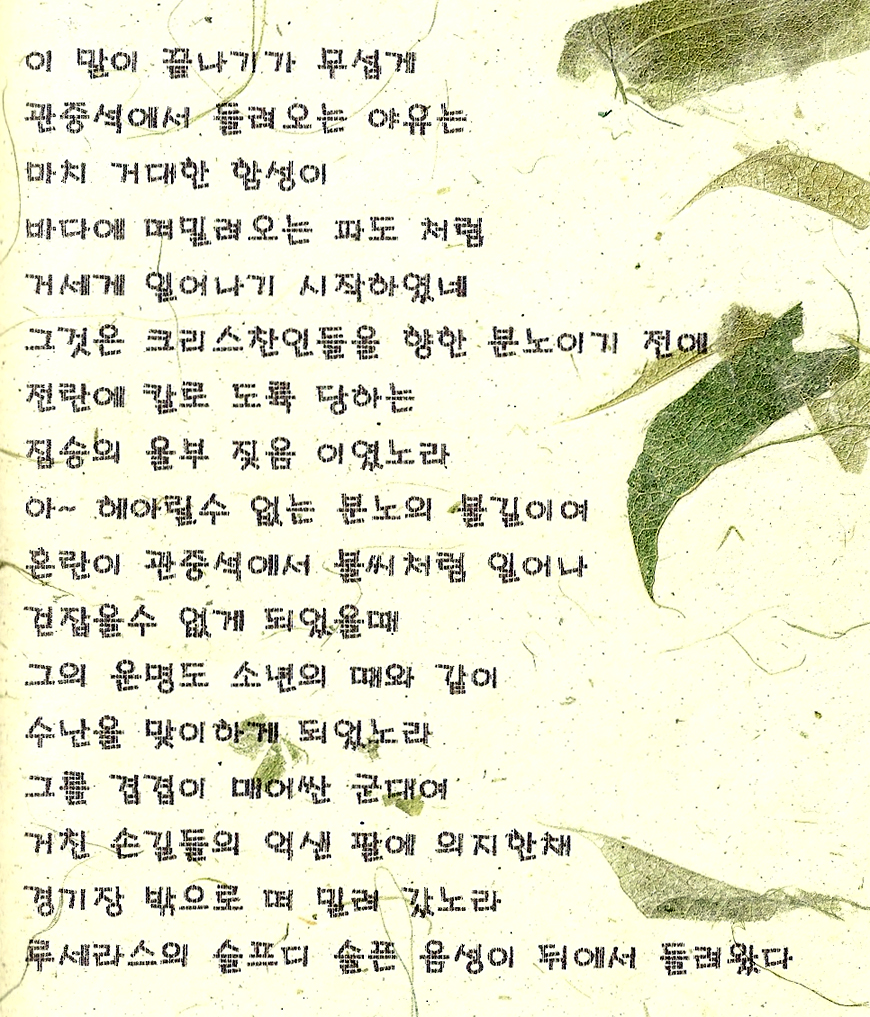 이 말이 끝나기가 무섭게
관중석에서 들려오는 야유는
마치 거대한 함성이
바다에 떠밀려오는 파도 처럼
거세게 일어나기 시작하였네
그것은 크리스찬인들을 향한 분노이기 전에
전란에 칼로 도륙 당하는
짐승의 울부 짖음 이였노라
아~ 헤아릴수 없는 분노의 불길이여
혼란이 관중석에서 불씨처럼 일어나
걷잡을수 없게 되었을때
그의 운명도 소년의 때와 같이
수난을 맞이하게 되었노라
그를 겹겹이 매어싼 군대여
거친 손길들의 억샌 팔에 의지한채
경기장 밖으로 떠 밀려 갔노라
루세라스의 슬프디 슬픈 음성이 뒤에서 들려왔다